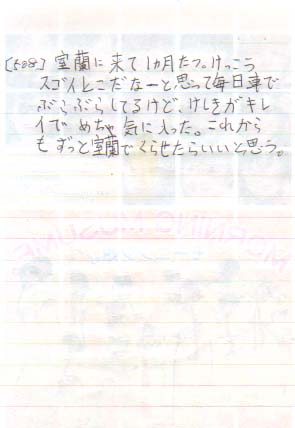 [508] 室蘭に来て1カ月たつ。けっこう
スゴイとこだなーと思って毎日車で
ぶらぶらしてるけど、けしきがキレ
イで めちゃ気に入った。これから
も ずっと室蘭でくらせたらいいと思う。
MORNING MUSUME